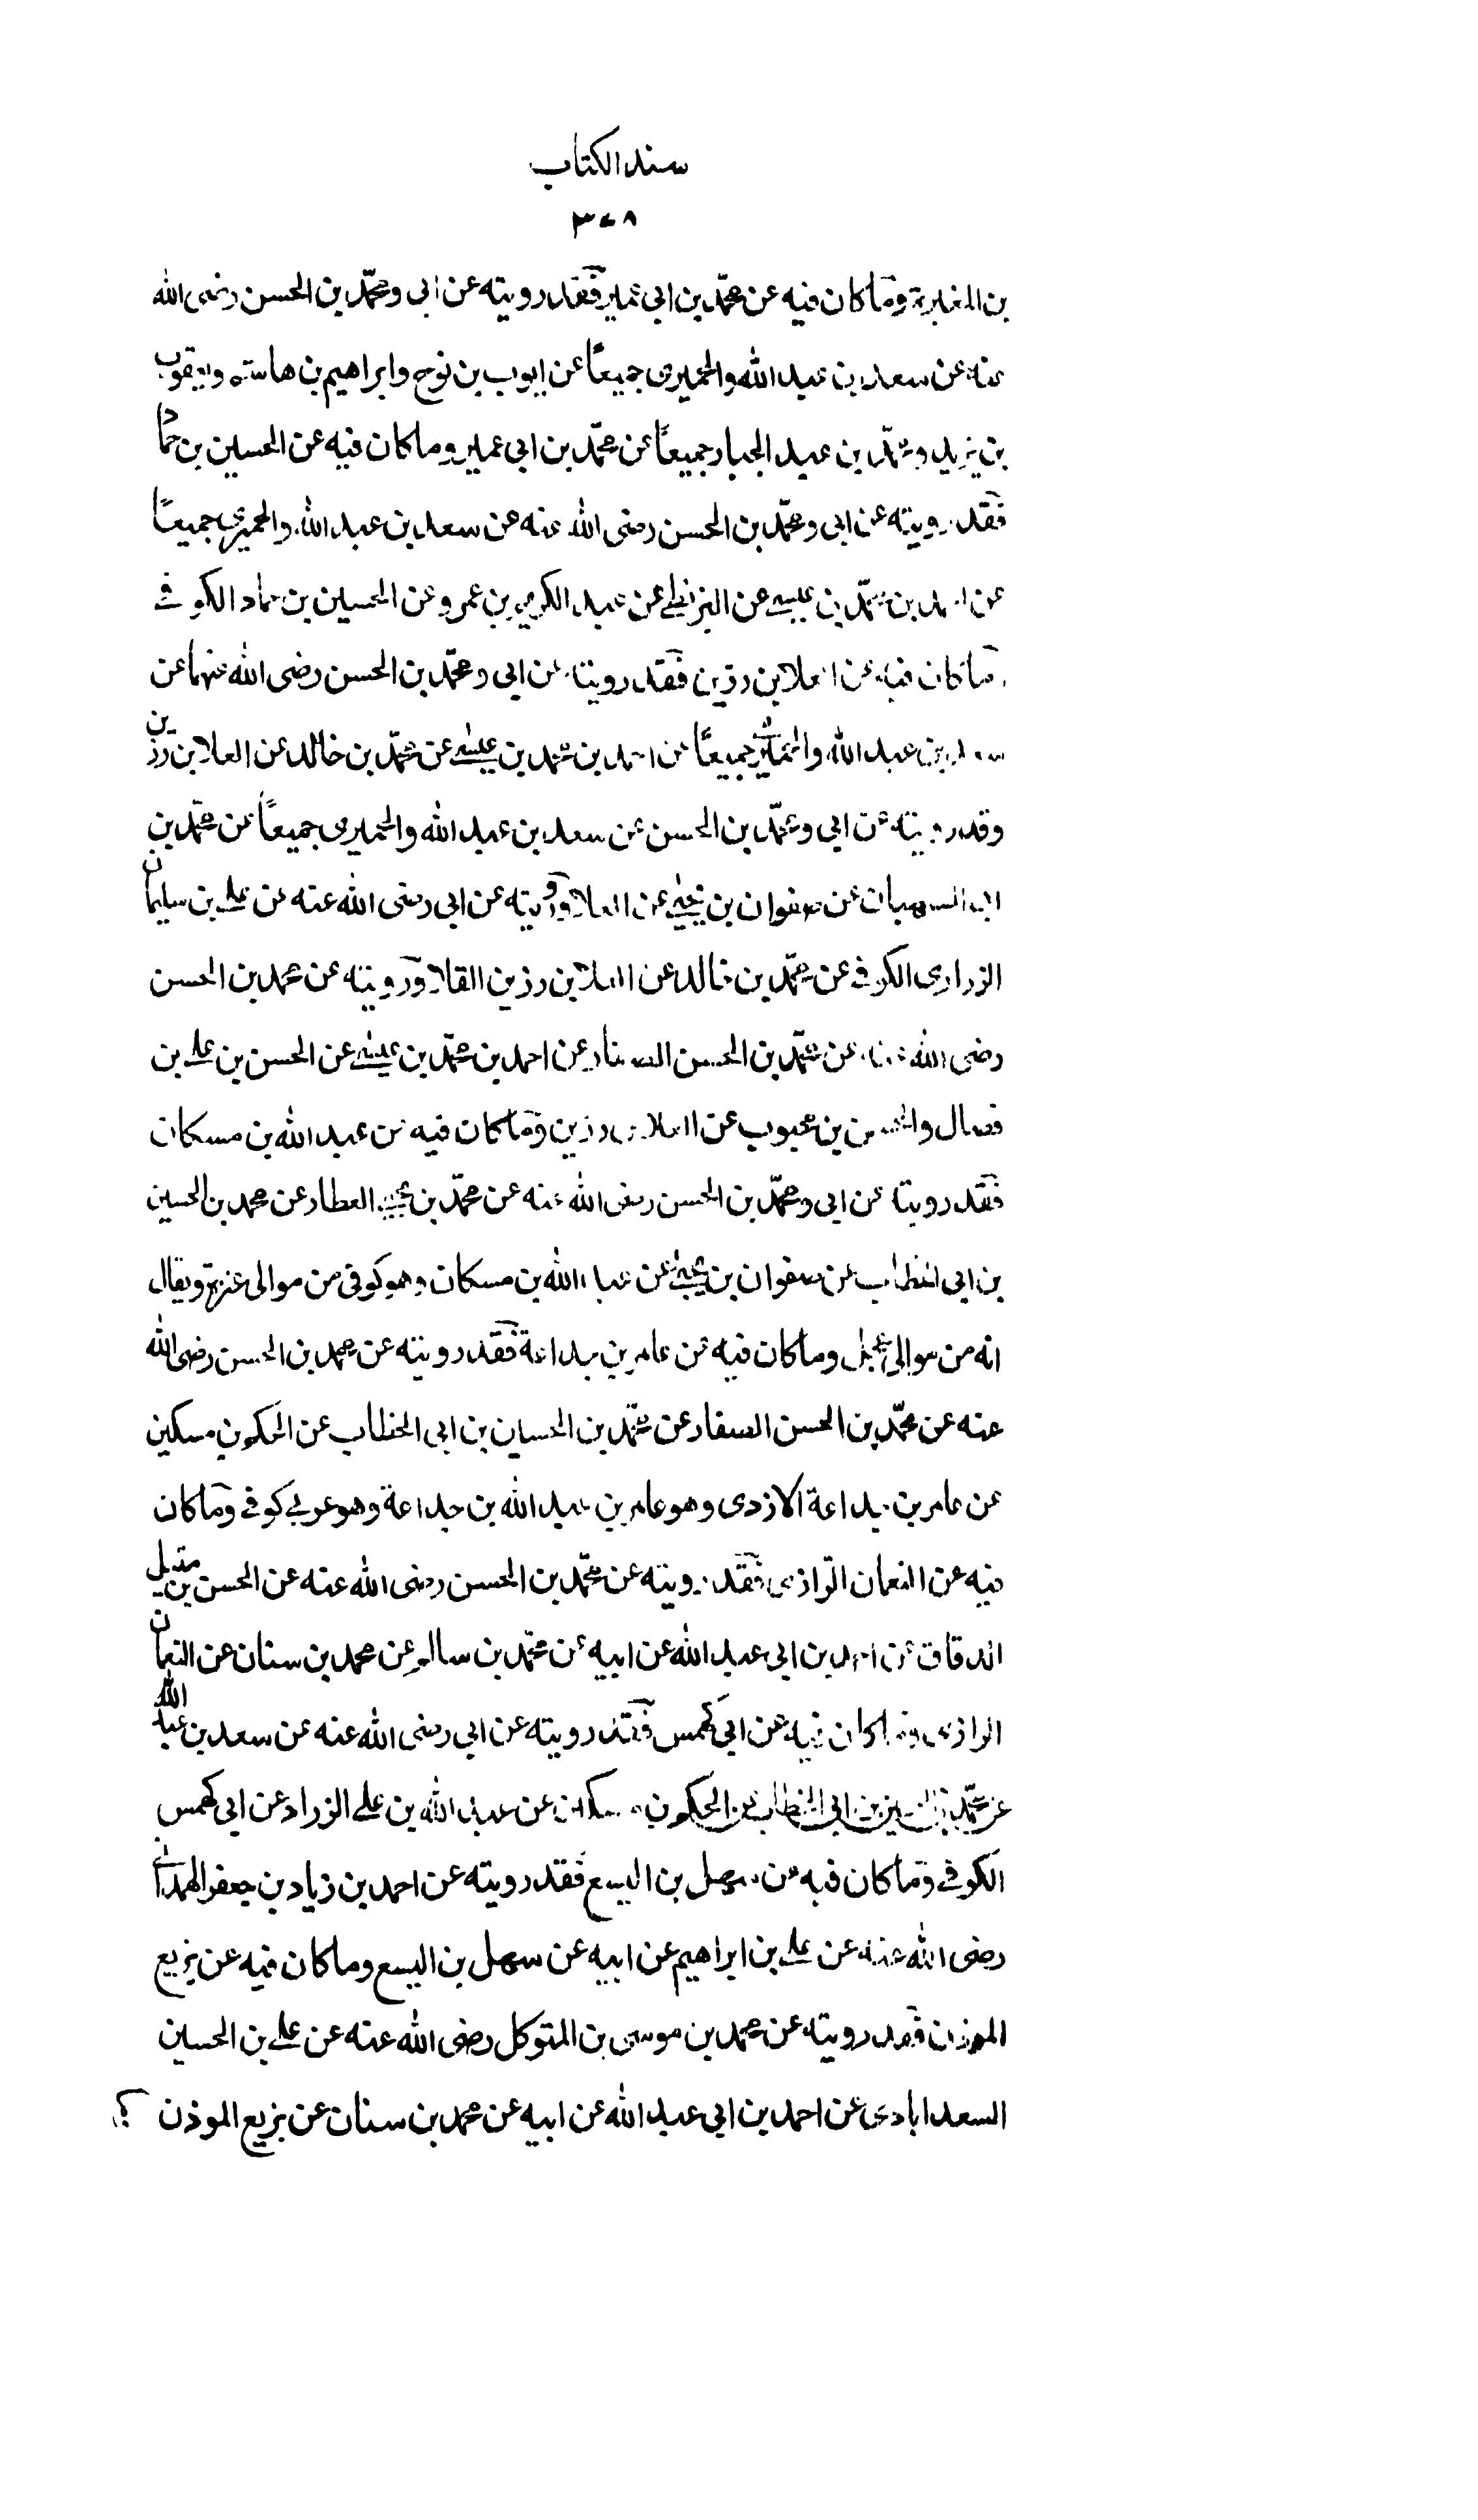 سند الكتاب
٣٧٨
بن المغيرة وما كان فيه عن محمّد بن ابى عمير فقد رويته عن ابى ومحمّد بن الحسن رضى الله
عنه عن سعد بن عبد الله والحميرى جميعًا عن ايوب بن نوح وابراهيم بن هاشم ويعقوب
بن يزيد ومحمّد بن عبد الجبار جميعًا عن محمّد بن ابى عمير وما كان فيه عن الحسين بن حماد
فقد رويته عن ابى ومحمّد بن الحسن رضى الله عنه عن سعد بن عبد الله والحميرى جميعًا
عن احمد بن محمّد بن عيسى عن البزنطى عن عبد الكريم بن عمرو عن الحسين بن حماد الكوفى
وما كان فيه عن العلا بن رزين فقد رويته عن ابى ومحمّد بن الحسن رضى الله عنهما عن
سعد بن عبد الله والحميرى جميعًا عن احمد بن محمد بن عيسى عن محمّد بن خالد عن العلا بن رزين
وقد رويته عن ابى ومحمّد بن الحسن عن سعد بن عبد الله والحميرى جميعًا عن محمّد بن
ابى الصهبان عن صفوان بن يحيى عن العلا ورويته عن ابى رضى الله عنه عن على بن سليمان
الزرارى الكوفى عن محمّد بن خالد عن العلا بن رزين القلا ورويته عن محمد بن الحسن
رضى الله عنه عن محمّد بن الحسن الصفار عن احمد بن محمّد بن عيسى عن الحسن بن على بن
فضال والحسن بن محبوب عن العلا بن رزين وما كان فيه عن عبد الله بن مسكان
فقد رويته عن ابى ومحمّد بن الحسن رضى الله عنه عن محمّد بن يحيى العطار عن محمد بن الحسين
بن ابى الخطاب عن صفوان بن يحيى عن عبد الله بن مسكان وهو كوفى من موالى عنزة ويقال
انه من موالى عجل وما كان فيه عن عامر بن جداعة فقد رويته عن محمد بن الحسن رضى الله
عنه عن محمّد بن الحسن الصفار عن محمّد بن الحسين بن ابى الخطاب عن الحكم بن مسكين
عن عامر بن جداعة الازدى وهو عامر بن عبد الله بن جداعة وهو عربى كوفى وما كان
فيه عن النعمان الرازى فقد رويته عن محمّد بن الحسن رضى الله عنه عن الحسن بن متيل
الدقاق عن احمد بن ابى عبد الله عن ابيه عن محمّد بن سالم عن محمد بن سنان عن النعمان
الرازى وما كان فيه عن ابى كهمس فقد رويته عن ابى رضى الله عنه عن سعد بن عبد الله
عن محمّد بن الحسين بن ابى الخطاب عن الحكم بن مسكين عن عبد الله بن على الزراد عن ابى كهمس
الكوفى وما كان فيه عن سهل بن اليسع فقد رويته عن احمد بن زياد بن جعفر الهمدانى
رضى الله عنه عن على بن ابراهيم عن ابيه عن سهل بن اليسع وما كان فيه عن بزيع
الموذن فقد رويته عن محمد بن موسى بن المتوكل رضى الله عنه عن على بن الحسين
السعدابادى عن احمد بن ابى عبد الله عن ابيه عن محمد بن سنان عن بزيع الموذن